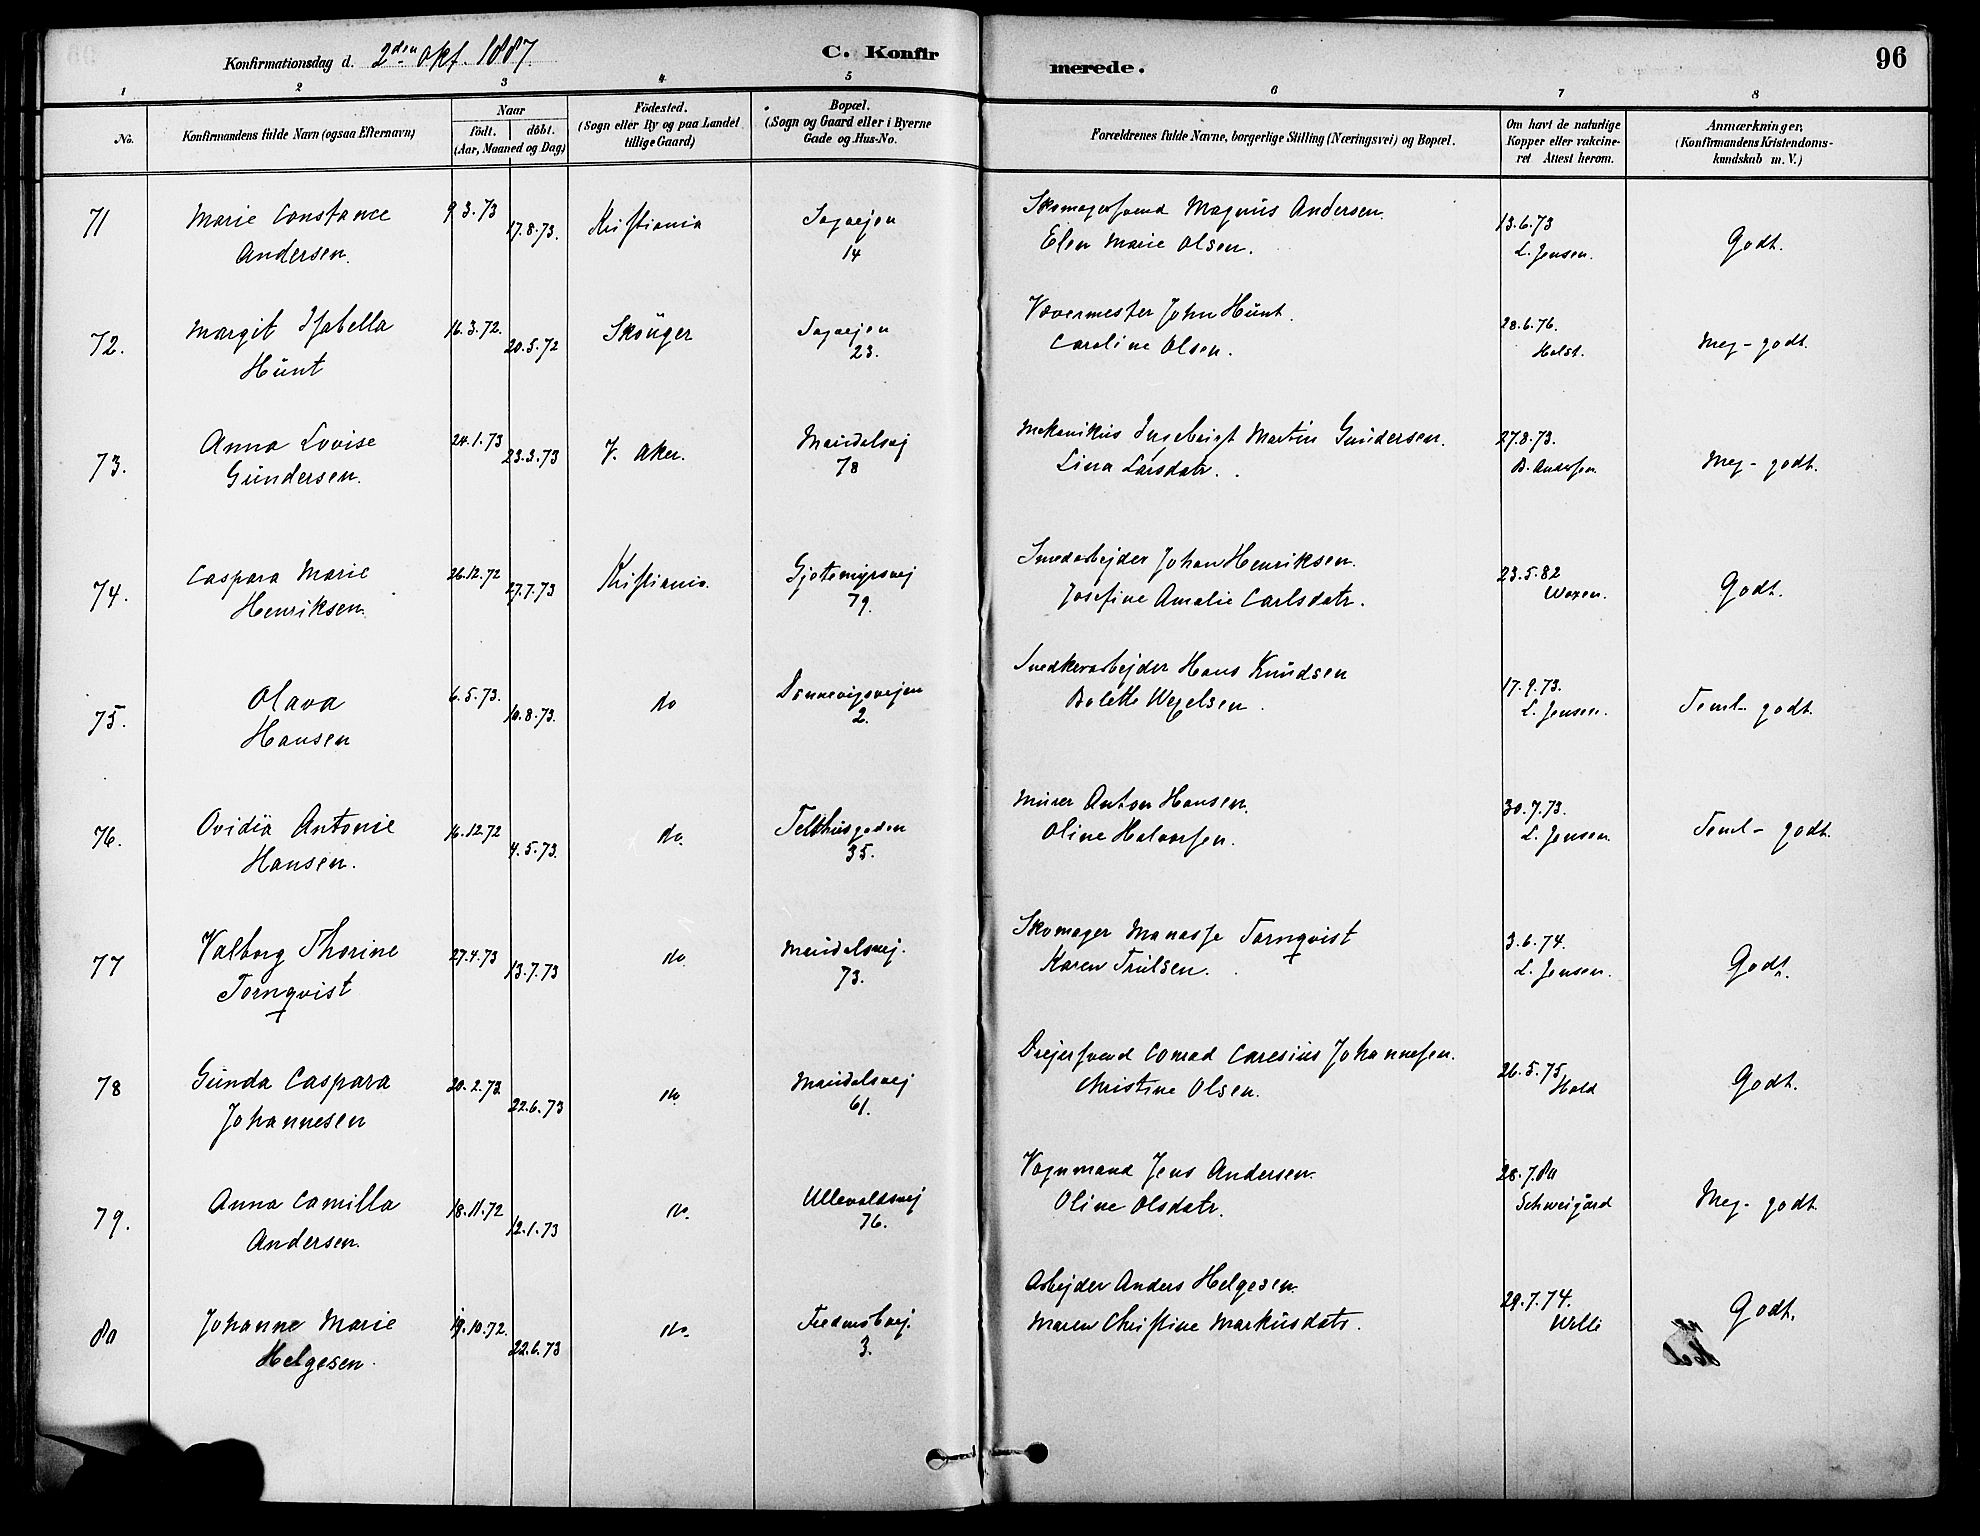 Konfirmationsdag d. 2den Okt. 1887.
C. Konfirmerede.
96
1 2 3 4 5 6 7 8
No.
Konfirmandens fulde Navn (ogsaa Efternavn)
Naar
født. døbt.
(Aar, Maaned og Dag)
Födested.
(Sogn eller By og paa Landet
tillige Gaard)
Bopæl.
(Sogn og Gaard eller i Byerne
Gade og Hus-No.
Forældrenes fulde Navne, borgerlige Stilling (Næringsvei) og Bopæl.
Om havt de naturlige
Kopper eller vakcine-
ret Attest herom.
Anmærkninger,
(Konfirmandens Kristendoms-
kundskab m. V.)
71 Marie Constance 9.3.73 17.8.73. Kristiania Sagvejen Skomagersvend Magnus Andersen 13.6.73 Godt.
Andersen. 14 Elen Marie Olsen. L. Jensen.
72. Margit Isabella 16.3.72. 20.5.72 Skouger Sagvejen Vævermester John Hunt. 28.6.76. Meg-godt.
Hunt 23. Caroline Olsen. Holst.
73. Anna Lovise 24.1.73 23.3.73 V. Aker. Maridalsvej Mekanikus Ingebrigt Martin Gundersen. 27.8.73. Meg-godt.
Gundersen. 78 Lina Larsdatr. B. Andersen
74. Caspara Marie 26.12.72 27.7.73 Kristiania. Gjetemyrsvej Smedarbejder Johan Henriksen. 23.5.82 Godt.
Henriksen. 79. Josefine Amalie Carlsdatr. Woxen.
75. Olava 6.5.73. 10.8.73. do Dannevigsvejen Snedkerarbejder Hans Knudsen 17.9.73. Teml-godt.
Hansen 2. Bolette Wexelsen. L. Jensen.
76. Ovidia Antonie 16.12.72 4.5.73. do. Telthusgaden Murer Anton Hansen. 30.7.73. Teml-godt.
Hansen. 35. Oline Halvorsen. L. Jensen.
77 Valborg Thorine 27.4.73 13.7.73 do Maridalsvej. Skomager Manasse Tornqvist 3.6.74. Godt.
Tornqvist 73. Karen Trulsen. L. Jensen.
78 Gunda Caspara 20.2.73. 22.6.73 do Maridalsvej Drejersvend Conrad Caresius Johannesen. 26.5.75. Godt.
Johannesen 61. Christine Olsen. Hald
79. Anna Camilla 18.11.72 12.1.73 do. Ullevoldsvej Vognmand Jens Andersen. 28.7.80 Meg-godt.
Andersen. 76. Oline Olsdatr. Schweigård
80 Johanne Marie 19.10.72. 22.6.73 do. Fredensbvej. Arbejder Anders Helgesen. 29.7.74. Godt.
Helgesen. 3. Maren Christine Markusdatr.